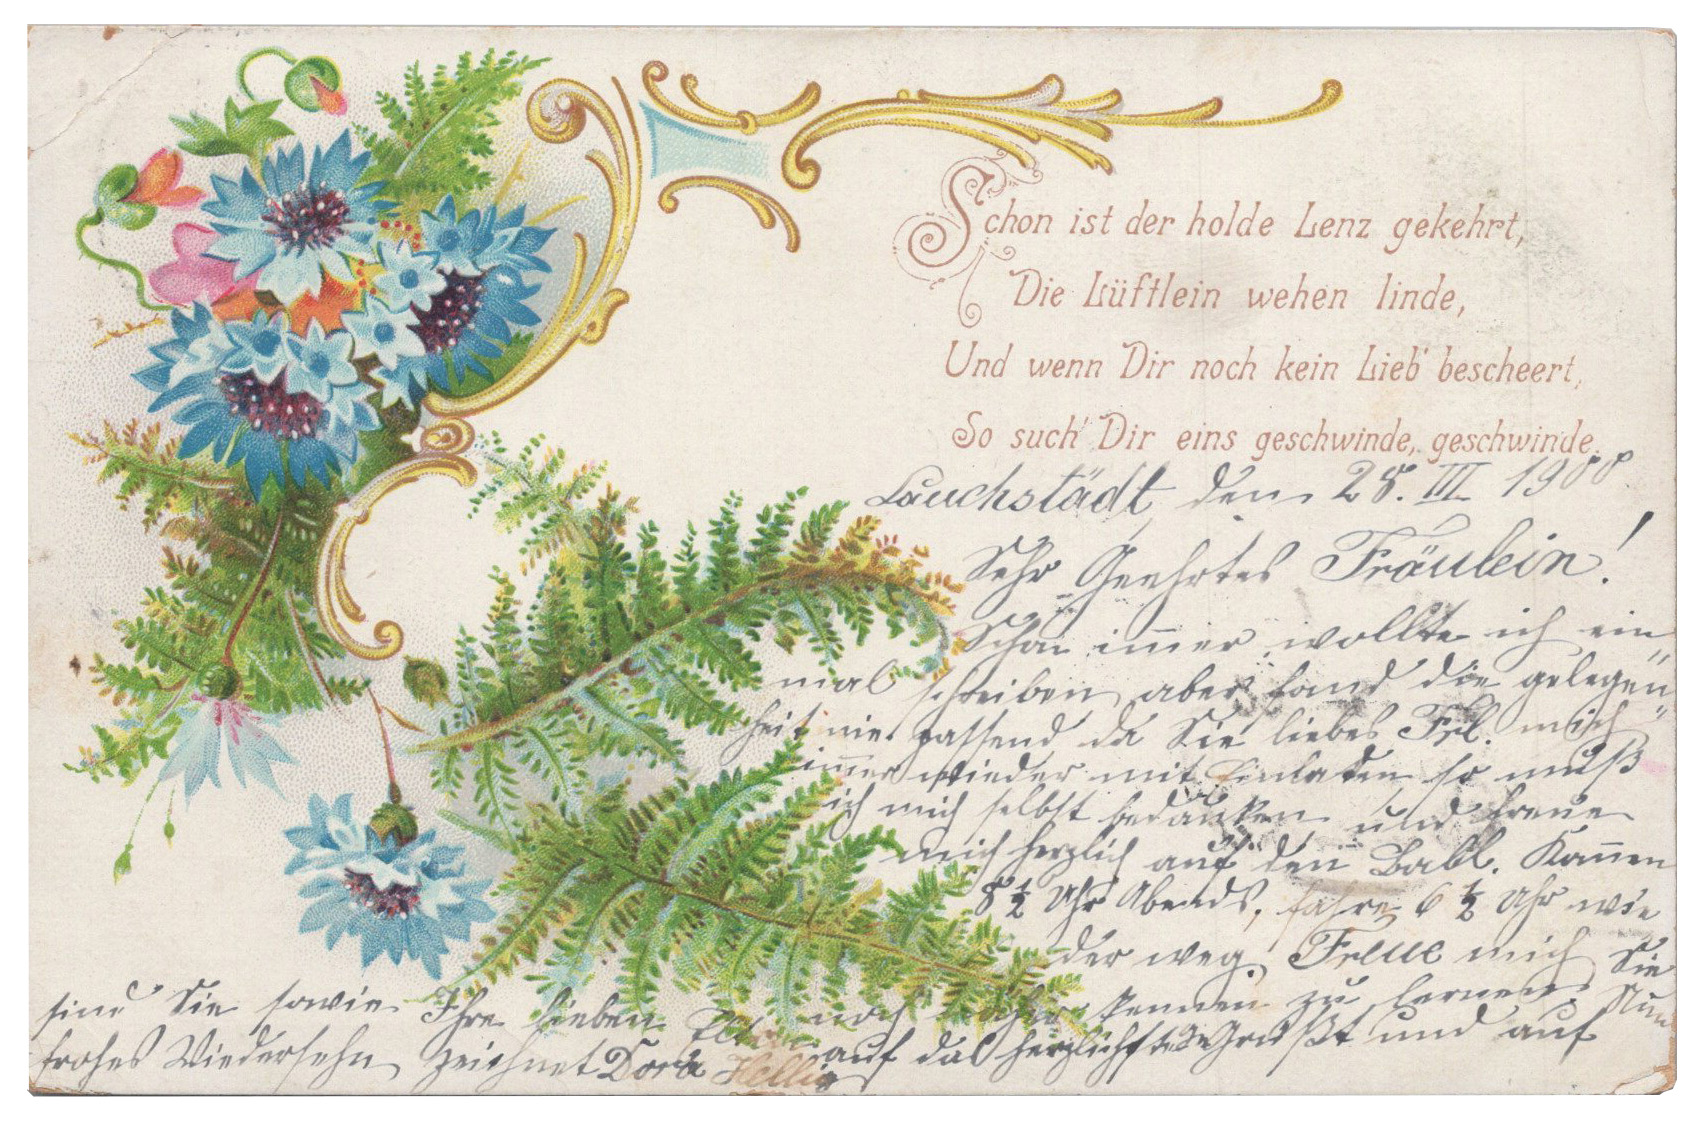 Schon ist der holde Lenz gekehrt,
Die Lüftlein wehen linde,
Und wenn Dir noch kein Lieb' bescheert,
So such' Dir eins geschwinde, geschwinde.
Lauchstädt den 28. III 1900.
Sehr Geehrtes Fräulein!
Schon im̄er wollte ich ein„
mal schreiben, aber fand die gelegen„
heit nie passend da Sie liebes Frl. mich
im̄er wieder mit Einladen so muß
ich mich selbst bedanken und freue
mich herzlich auf den Ball. Kom̄en
8½ Uhr Abends, fahren 6½ Uhr wie
der weg. Freue mich Sie
sind Sie sowie Ihre lieben Eltern noch näher kennen zu lernen. Nun
frohes Wiedersehn zeichnet Dora auf das herzlichste Grüßt und auf